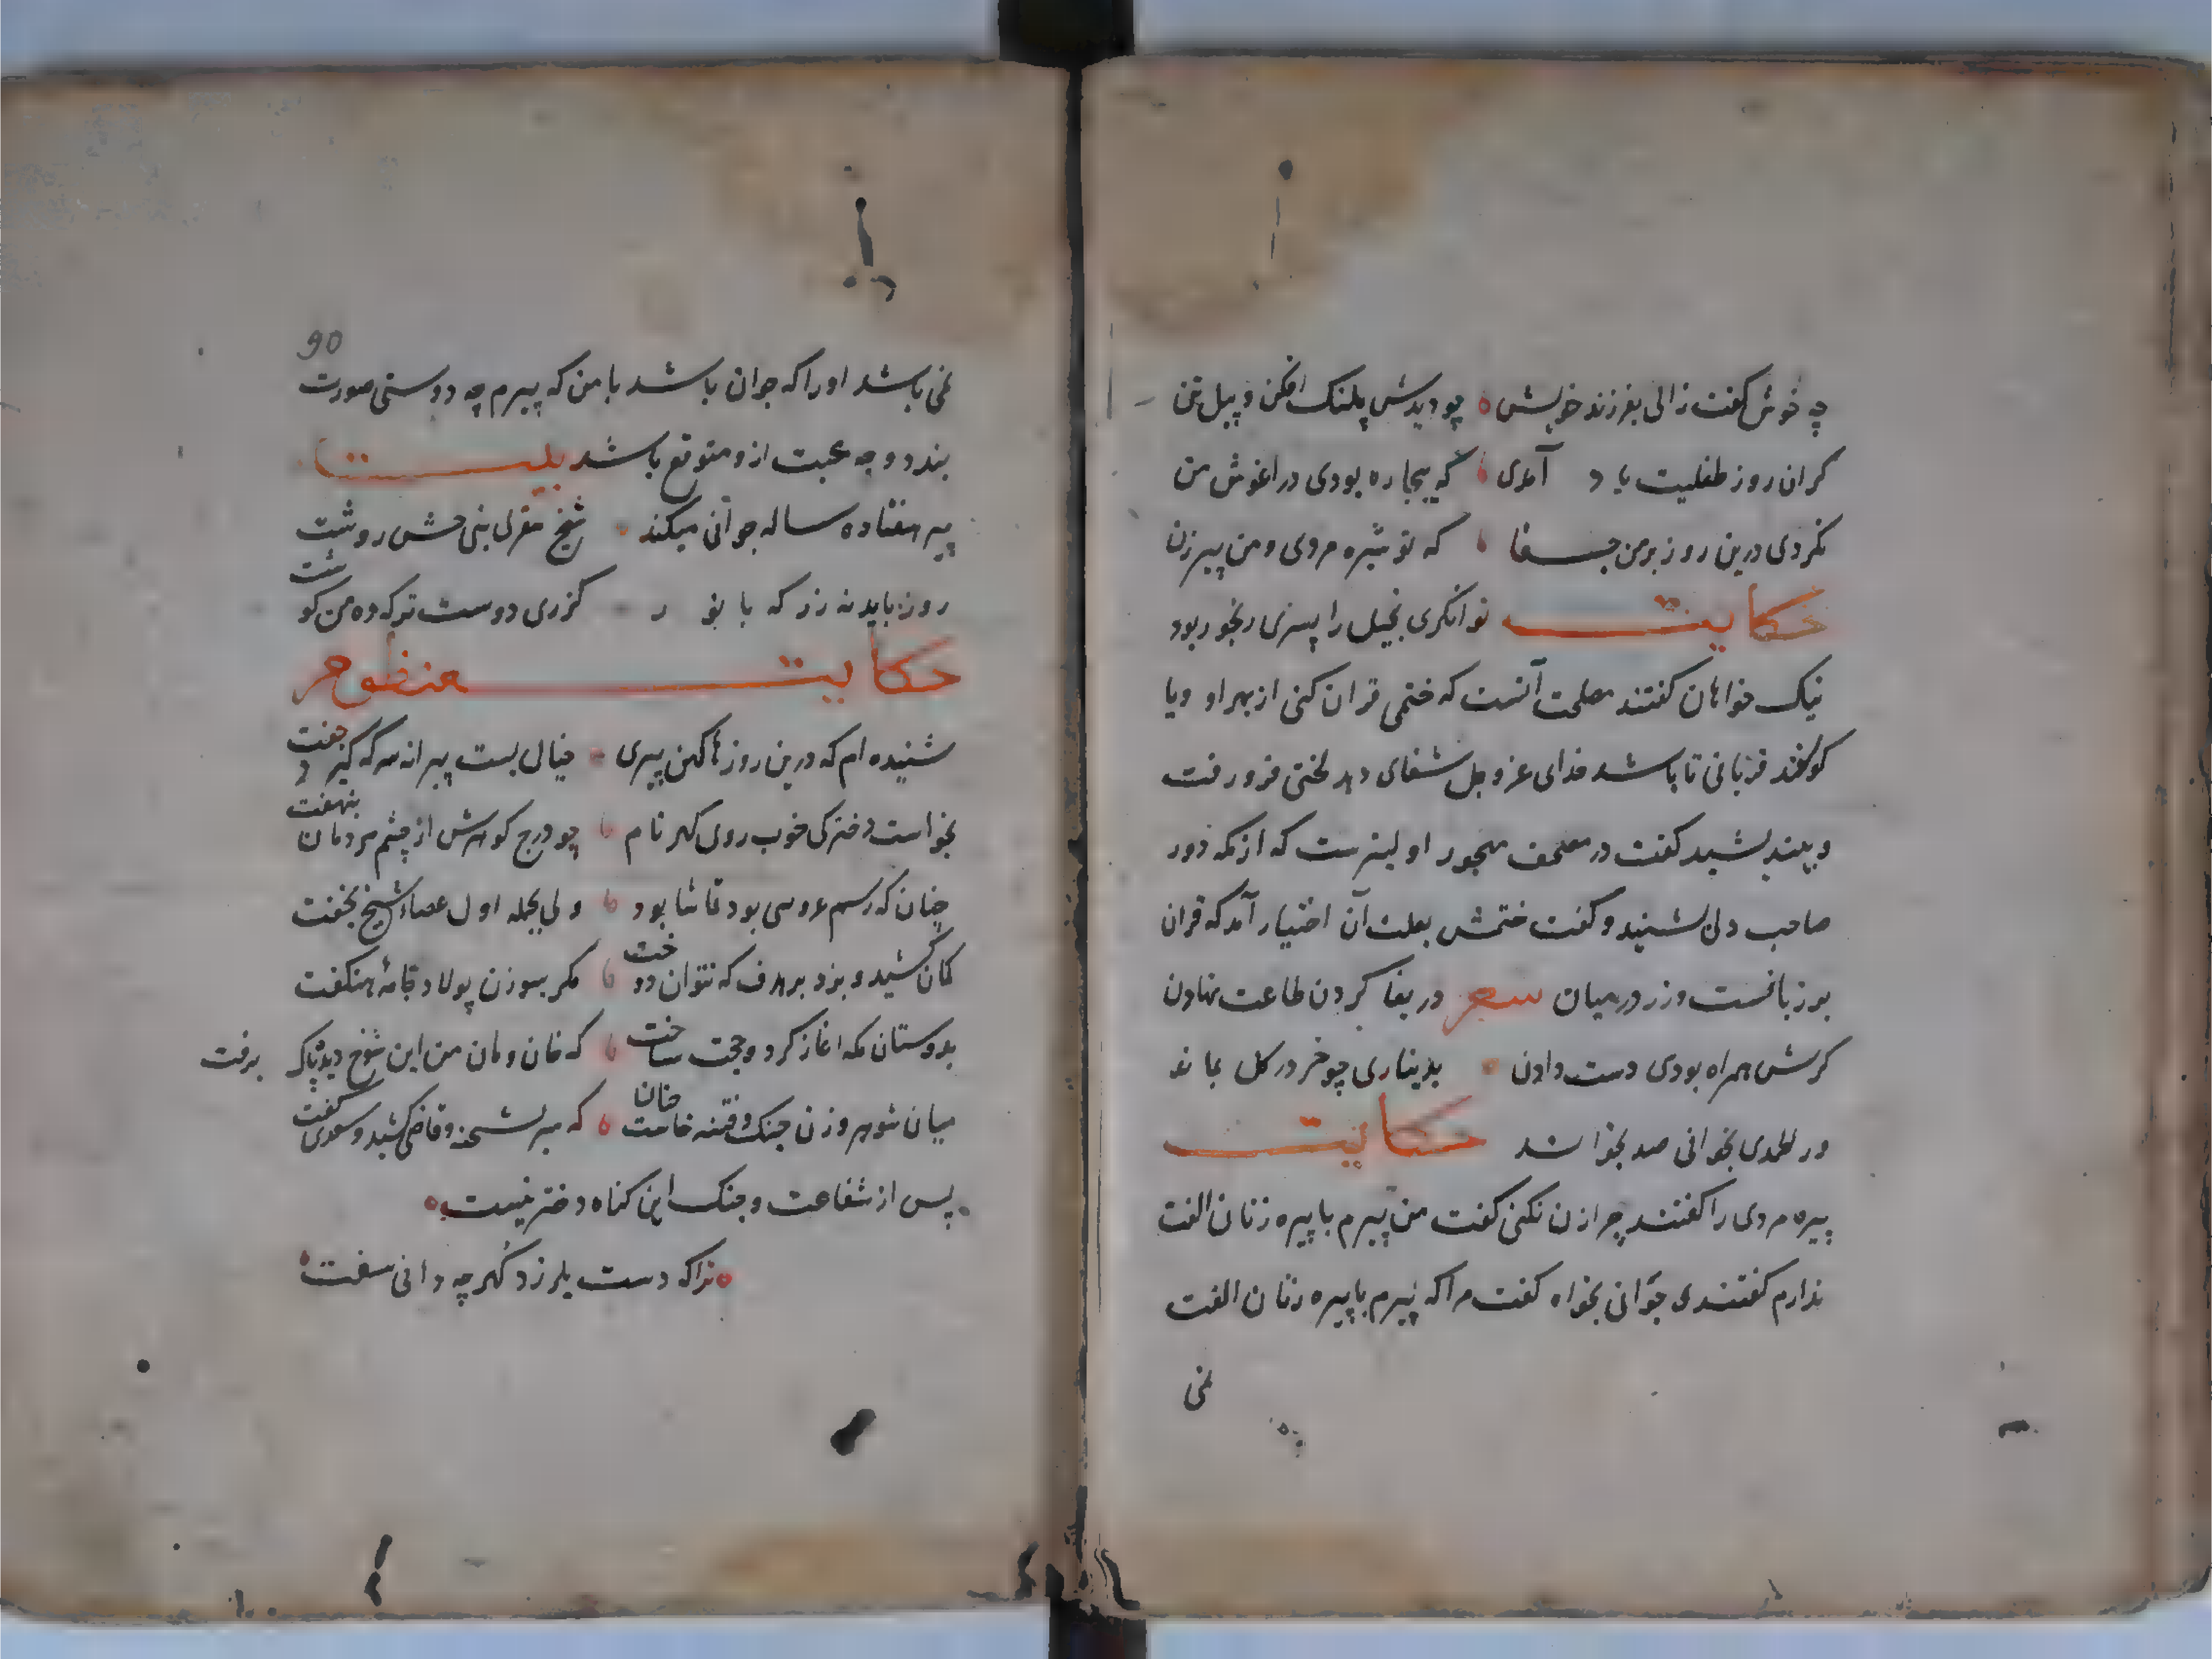 چه خوش گفت زالی بفرزند خویش چو دیدش پلنک افکن و پیل تن
کران روز طفلیت یاد آمدی که بیجاره بودی در اغوش من
نکردی درین روز بر من جفا که تو شیره مردی و من پیر زن
حکایت توانکری بخیل را پسری رنجور بود
نیک خواهان کفتند مصلحت آنست که ختمی قران کنی از بهر او ویا
کوسفند قربانی تا باشد خدای عز و جل شفای دهد لختی فرو رفت
و بیندیشید کفت در مصحف مهجور اولیترست که از کله دور
صاحب دلی بشنید و کفت ختمش بعلت آن اختیار آمد که قران
بر زبانست و زر در میان شعر دریغا کردن طاعت نهادن
کرش همراه بودی دست دادن بدیناری چو خر در کل بماند
ور الحمدی بخوانی صد بخواند حکایت
پیره مردی را کفتند چرا زن نکنی کفت من پیرم با پیره زنان الفت
ندارم کفتندی جوانی بخواه کفت مرا که پیرم با پیره زنان الفت
نمی
90
نمی باشد اورا که جوان باشد با من که پیرم چه دوستی صورت
بندد و چه محبت ازو متوقع باشد بیت
پیر هفتاده ساله جوانی میکند
روز باید نه زر که بانو کزری دوست ترکه ده من کوشت
حکایت منظوم
شنیده ام که درین روزها کهن پیری خیال بست پیرانه سر که کیرد جفت
بخواست دخترکی خوب روی کهر نام چو درج کوهرش از چشم مردمان بنهفت
چنان که رسم عروسی بود تماشا بود ولی بحمله اول عصاء شیخ بخفت
کمان کشید و بزد بر هدف که نتوان دوخت مکر بسوزن پولاد جامهٔ هنکفت
بدوستان کله اغاز کرد و حجت ساخت که خان و مان من این شوخ دیده پاک برفت
میان شوهر و زن جنک و فتنه خاست چنان که سر بشحنه و قاضی کشید و سعدی کفت
پس از شفاعت و جنک این کناه دختر نیست
ترا که دست بلرزد کهر چه دانی سفت